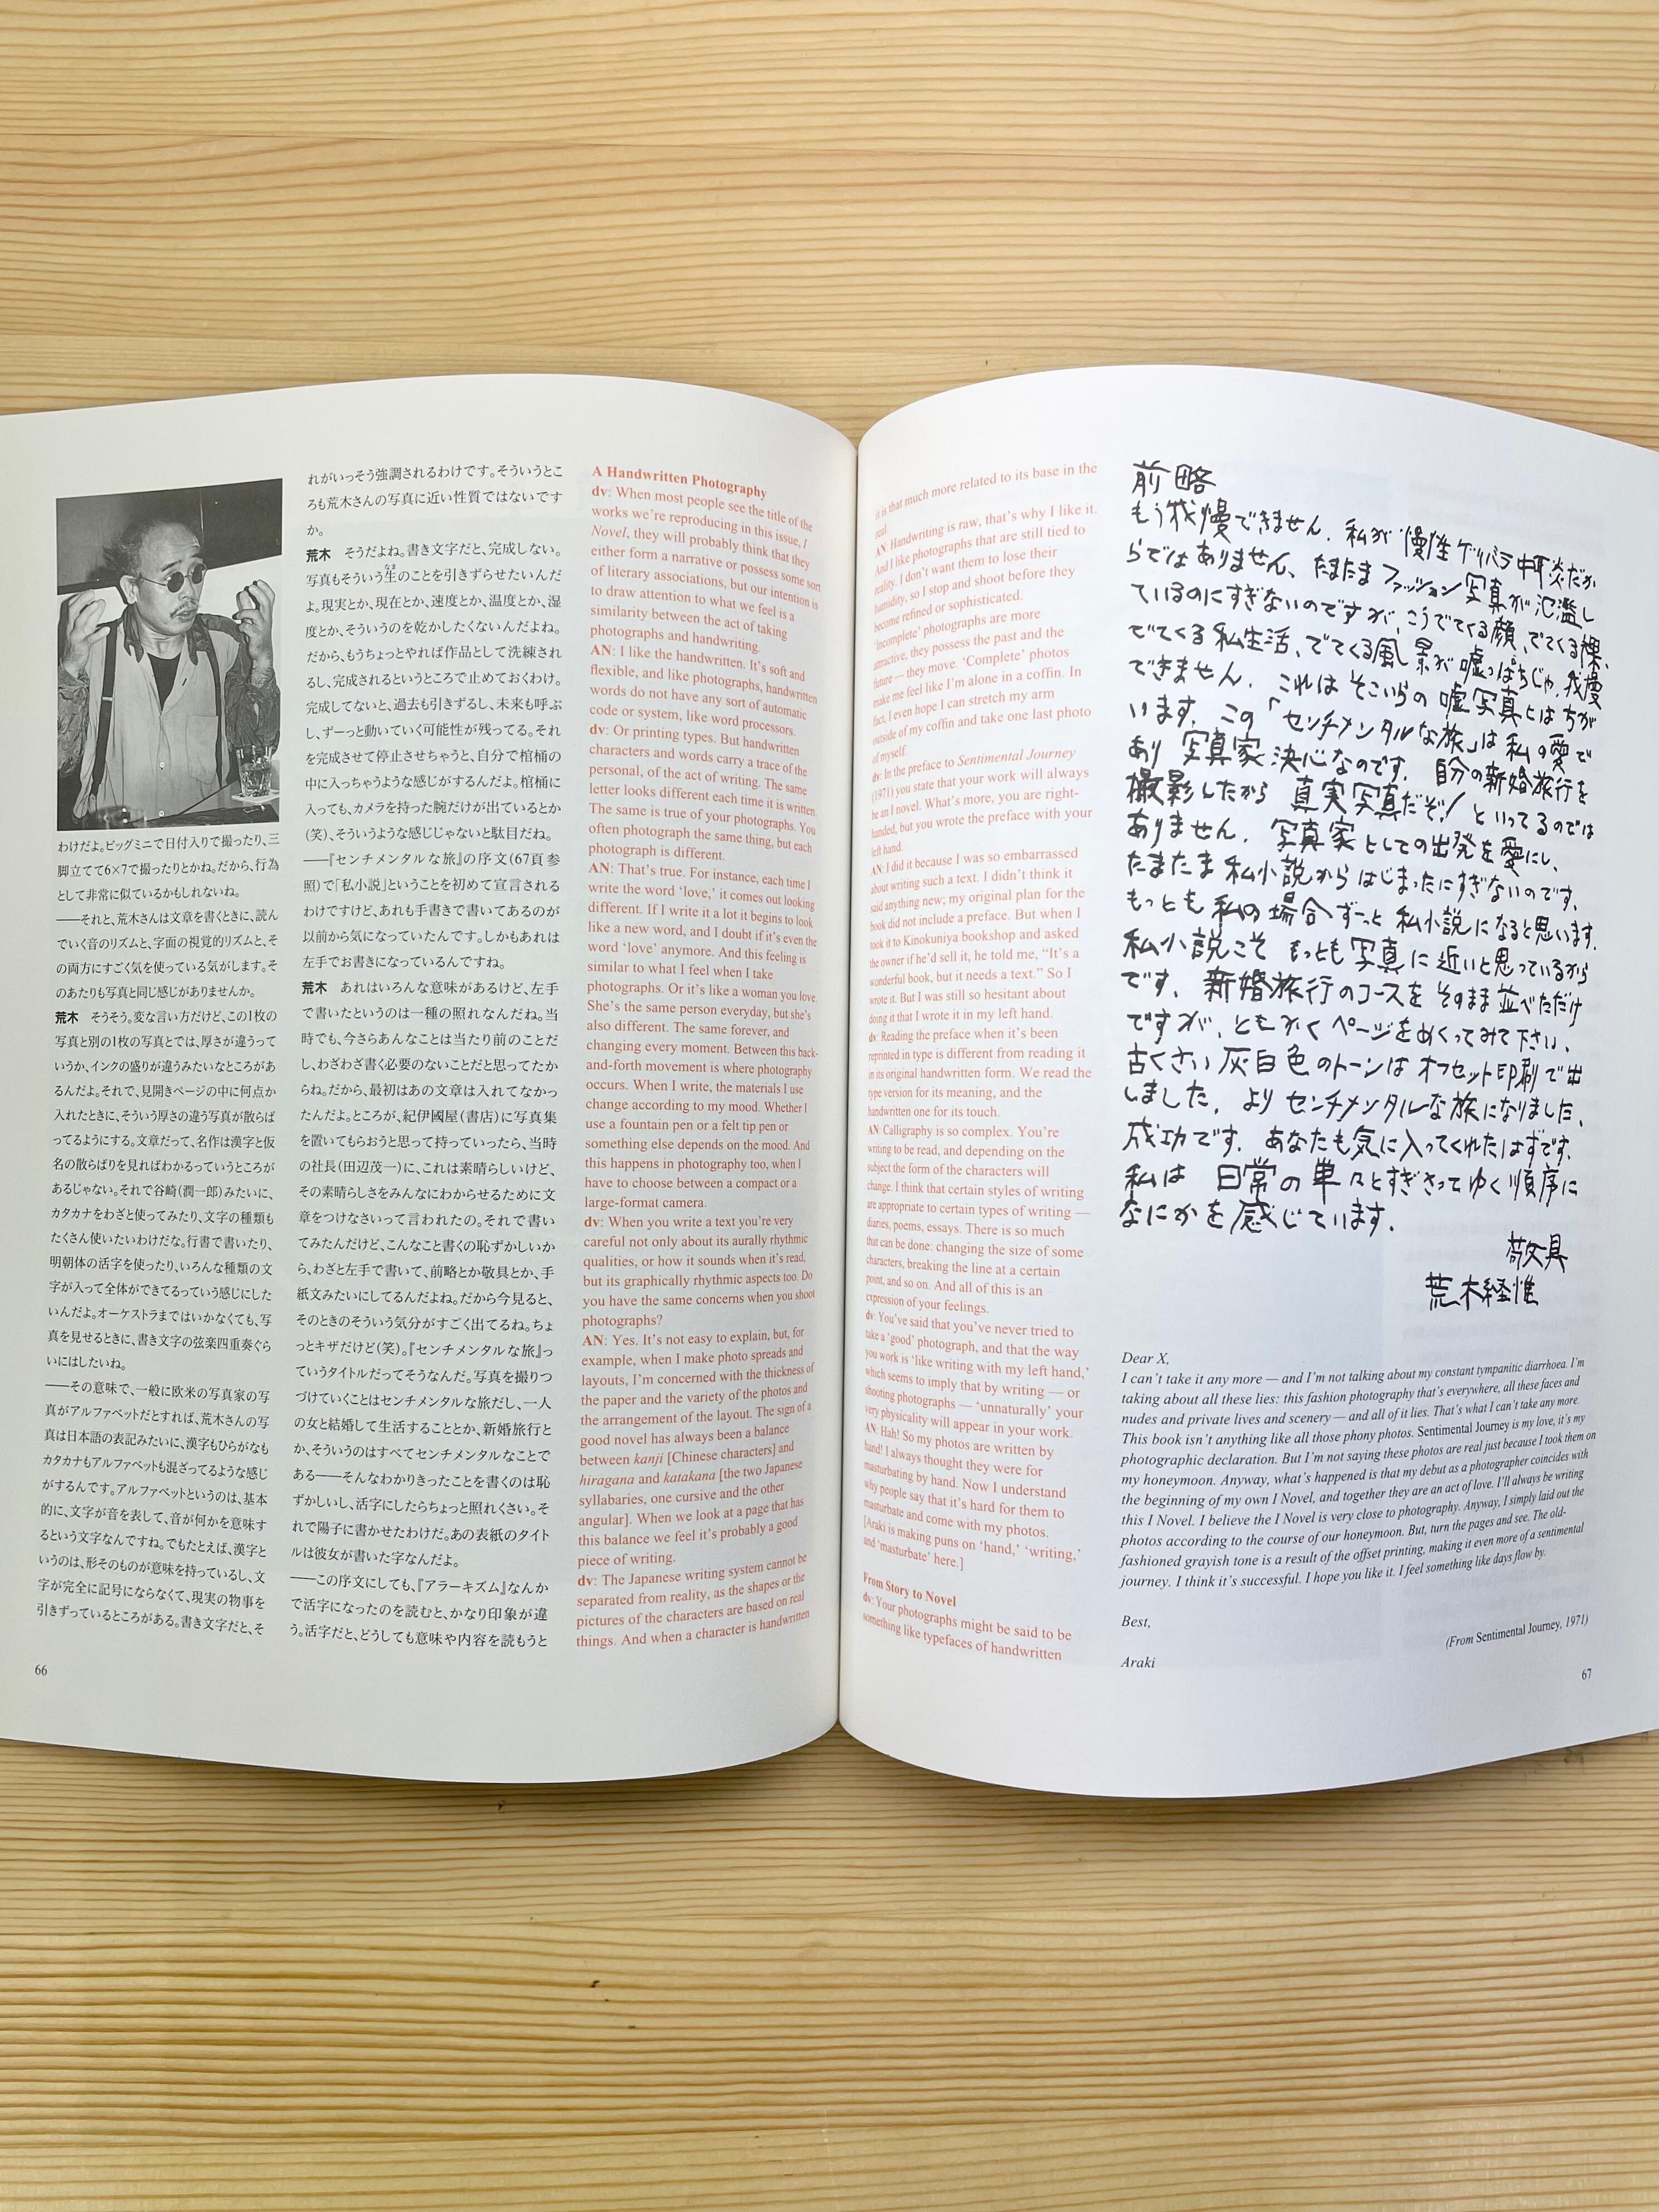 わけだよ。ビッグミニで日付入りで撮ったり、三
脚立てて6×7で撮ったりとかね。だから、行為
として非常に似ているかもしれないね。
――それと、荒木さんは文章を書くときに、読ん
でいく音のリズムと、字面の視覚的リズムと、そ
の両方にすごく気を使っている気がします。そ
のあたりも写真と同じ感じがありませんか。
荒木 そうそう。変な言い方だけど、この1枚の
写真と別の1枚の写真とでは、厚さが違うって
いうか、インクの盛りが違うみたいなところがあ
るんだよ。それで、見開きページの中に何点か
入れたときに、そういう厚さの違う写真が散らば
ってるようにする。文章だって、名作は漢字と仮
名の散らばりを見ればわかるっていうところが
あるじゃない。それで谷崎(潤一郎)みたいに、
カタカナをわざと使ってみたり、文字の種類も
たくさん使いたいわけだな。行書で書いたり、
明朝体の活字を使ったり、いろんな種類の文
字が入って全体ができてるっていう感じにした
いんだよ。オーケストラまではいかなくても、写
真を見せるときに、書き文字の弦楽四重奏ぐら
いにはしたいね。
――その意味で、一般に欧米の写真家の写
真がアルファベットだとすれば、荒木さんの写
真は日本語の表記みたいに、漢字もひらがなも
カタカナもアルファベットも混ざってるような感じ
がするんです。アルファベットというのは、基本
的に、文字が音を表して、音が何かを意味す
るという文字なんですね。でもたとえば、漢字と
いうのは、形そのものが意味を持っているし、文
字が完全に記号にならなくて、現実の物事を
引きずっているところがある。書き文字だと、そ
66
れがいっそう強調されるわけです。そういうとこ
ろも荒木さんの写真に近い性質ではないです
か。
荒木 そうだよね。書き文字だと、完成しない。
写真もそういう生のことを引きずらせたいんだ
よ。現実とか、現在とか、速度とか、温度とか、湿
度とか、そういうのを乾かしたくないんだよね。
だから、もうちょっとやれば作品として洗練され
るし、完成されるというところで止めておくわけ。
完成してないと、過去も引きずるし、未来も呼ぶ
し、ずーっと動いていく可能性が残ってる。それ
を完成させて停止させちゃうと、自分で棺桶の
中に入っちゃうような感じがするんだよ。棺桶に
入っても、カメラを持った腕だけが出ているとか
(笑)、そういうような感じじゃないと駄目だね。
――『センチメンタルな旅』の序文(67頁参
照)で「私小説」ということを初めて宣言される
わけですけど、あれも手書きで書いてあるのが
以前から気になっていたんです。しかもあれは
左手でお書きになっているんですね。
荒木 あれはいろんな意味があるけど、左手
で書いたというのは一種の照れなんだね。当
時でも、今さらあんなことは当たり前のことだ
し、わざわざ書く必要のないことだと思ってたか
らね。だから、最初はあの文章は入れてなかっ
たんだよ。ところが、紀伊國屋(書店)に写真集
を置いてもらおうと思って持っていったら、当時
の社長(田辺茂一)に、これは素晴らしいけど、
その素晴らしさをみんなにわからせるために文
章をつけなさいって言われたの。それで書い
てみたんだけど、こんなこと書くの恥ずかしいか
ら、わざと左手で書いて、前略とか敬具とか、手
紙文みたいにしてるんだよね。だから今見ると、
そのときのそういう気分がすごく出てるね。ちょ
っとキザだけど(笑)。『センチメンタルな旅』っ
ていうタイトルだってそうなんだ。写真を撮りつ
づけていくことはセンチメンタルな旅だし、一人
の女と結婚して生活することとか、新婚旅行と
か、そういうのはすべてセンチメンタルなことで
ある――そんなわかりきったことを書くのは恥
ずかしいし、活字にしたらちょっと照れくさい。そ
れで陽子に書かせたわけだ。あの表紙のタイト
ルは彼女が書いた字なんだよ。
――この序文にしても、『アラーキズム』なんか
で活字になったのを読むと、かなり印象が違
う。活字だと、どうしても意味や内容を読もうと
A Handwritten Photography
dv: When most people see the title of the
works we're reproducing in this issue, I
Novel, they will probably think that they
either form a narrative or possess some sort
of literary associations, but our intention is
to draw attention to what we feel is a
similarity between the act of taking
photographs and handwriting.
AN: I like the handwritten. It's soft and
flexible, and like photographs, handwritten
words do not have any sort of automatic
code or system, like word processors.
dv: Or printing types. But handwritten
characters and words carry a trace of the
personal, of the act of writing. The same
letter looks different each time it is written.
The same is true of your photographs. You
often photograph the same thing, but each
photograph is different.
AN: That's true. For instance, each time I
write the word 'love,' it comes out looking
different. If I write it a lot it begins to look
like a new word, and I doubt if it's even the
word 'love' anymore. And this feeling is
similar to what I feel when I take
photographs. Or it's like a woman you love.
She's the same person everyday, but she's
also different. The same forever, and
changing every moment. Between this back-
and-forth movement is where photography
occurs. When I write, the materials I use
change according to my mood. Whether I
use a fountain pen or a felt tip pen or
something else depends on the mood. And
this happens in photography too, when I
have to choose between a compact or a
large-format camera.
dv: When you write a text you're very
careful not only about its aurally rhythmic
qualities, or how it sounds when it's read,
but its graphically rhythmic aspects too. Do
you have the same concerns when you shoot
photographs?
AN: Yes. It's not easy to explain, but, for
example, when I make photo spreads and
layouts, I'm concerned with the thickness of
the paper and the variety of the photos and
the arrangement of the layout. The sign of a
good novel has always been a balance
between kanji [Chinese characters] and
hiragana and katakana [the two Japanese
syllabaries, one cursive and the other
angular]. When we look at a page that has
this balance we feel it's probably a good
piece of writing.
dv: The Japanese writing system cannot be
separated from reality, as the shapes or the
pictures of the characters are based on real
things. And when a character is handwritten
it is that much more related to its base in the
real.
AN: Handwriting is raw, that's why I like it.
And I like photographs that are still tied to
reality. I don't want them to lose their
humidity, so I stop and shoot before they
become refined or sophisticated.
'Incomplete' photographs are more
attractive, they possess the past and the
future — they move. 'Complete' photos
make me feel like I'm alone in a coffin. In
fact, I even hope I can stretch my arm
outside of my coffin and take one last photo
of myself.
dv: In the preface to Sentimental Journey
(1971) you state that your work will always
be an I novel. What's more, you are right-
handed, but you wrote the preface with your
left hand.
AN: I did it because I was so embarrassed
about writing such a text. I didn't think it
said anything new; my original plan for the
book did not include a preface. But when I
took it to Kinokuniya bookshop and asked
the owner if he'd sell it, he told me, "It's a
wonderful book, but it needs a text." So I
wrote it. But I was still so hesitant about
doing it that I wrote it in my left hand.
dv: Reading the preface when it's been
reprinted in type is different from reading it
in its original handwritten form. We read the
type version for its meaning, and the
handwritten one for its touch.
AN: Calligraphy is so complex. You're
writing to be read, and depending on the
subject the form of the characters will
change. I think that certain styles of writing
are appropriate to certain types of writing —
diaries, poems, essays. There is so much
that can be done: changing the size of some
characters, breaking the line at a certain
point, and so on. And all of this is an
expression of your feelings.
dv: You've said that you've never tried to
take a 'good' photograph, and that the way
you work is 'like writing with my left hand,'
which seems to imply that by writing — or
shooting photographs — 'unnaturally' your
very physicality will appear in your work.
AN: Hah! So my photos are written by
hand! I always thought they were for
masturbating by hand. Now I understand
why people say that it's hard for them to
masturbate and come with my photos.
[Araki is making puns on 'hand,' 'writing,'
and 'masturbate' here.]
From Story to Novel
dv: Your photographs might be said to be
something like typefaces of handwritten
前略
もう我慢できません。私が慢性ゲリバラ中耳炎だか
らではありません。たまたまファッション写真が氾濫し
ているのにすぎないのですが、こうでてくる顔、でてくる裸、
でてくる私生活、でてくる風景が嘘っぱちじゃ、我慢
できません。これはそこいらの嘘写真とはちが
います。この「センチメンタルな旅」は私の愛で
あり写真家決心なのです。自分の新婚旅行を
撮影したから真実写真だぞ!といってるのでは
ありません。写真家としての出発を愛にし、
たまたま私小説からはじまったにすぎないのです。
もっとも私の場合ずーっと私小説になると思います。
私小説こそもっとも写真に近いと思っているから
です。新婚旅行のコースをそのまま並べただけ
ですが、ともかくページをめくってみて下さい。
古くさい灰白色のトーンはオフセット印刷で出
しました。よりセンチメンタルな旅になりました。
成功です。あなたも気に入ってくれたはずです。
私は日常の単々とすぎさってゆく順序に
なにかを感じています。
敬具
荒木経惟
Dear X,
I can't take it any more — and I'm not talking about my constant tympanitic diarrhoea. I'm
taking about all these lies: this fashion photography that's everywhere, all these faces and
nudes and private lives and scenery — and all of it lies. That's what I can't take any more.
This book isn't anything like all those phony photos. Sentimental Journey is my love, it's my
photographic declaration. But I'm not saying these photos are real just because I took them on
my honeymoon. Anyway, what's happened is that my debut as a photographer coincides with
the beginning of my own I Novel, and together they are an act of love. I'll always be writing
this I Novel. I believe the I Novel is very close to photography. Anyway, I simply laid out the
photos according to the course of our honeymoon. But, turn the pages and see. The old-
fashioned grayish tone is a result of the offset printing, making it even more of a sentimental
journey. I think it's successful. I hope you like it. I feel something like days flow by.
Best,
Araki
(From Sentimental Journey, 1971)
67